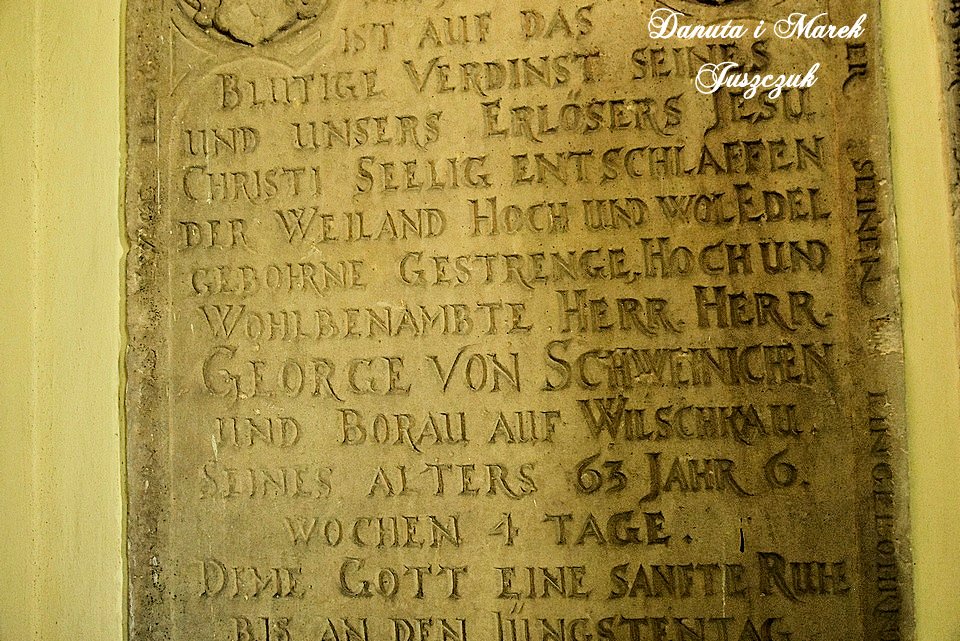 IST AUF DAS
BLUTIGE VERDINST SEINES
UND UNSERS ERLÖSERS JESU
CHRISTI SEELIG ENTSCHLAFFEN
DER WEILAND HOCH UND WOLEDEL
GEBOHRNE GESTRENGE, HOCH UND
WOHLBENAMBTE HERR. HERR.
GEORGE VON SCHWEINICHEN
UND BORAU AUF WILSCHKAU.
SEINES ALTERS 63 JAHR 6.
WOCHEN 4 TAGE.
DEME GOTT EINE SANFTE RUH
BIS AN DEN JÜNGSTENTAG
SEINEN
EINGEBOHRN
Danuta i Marek
Juszczuk